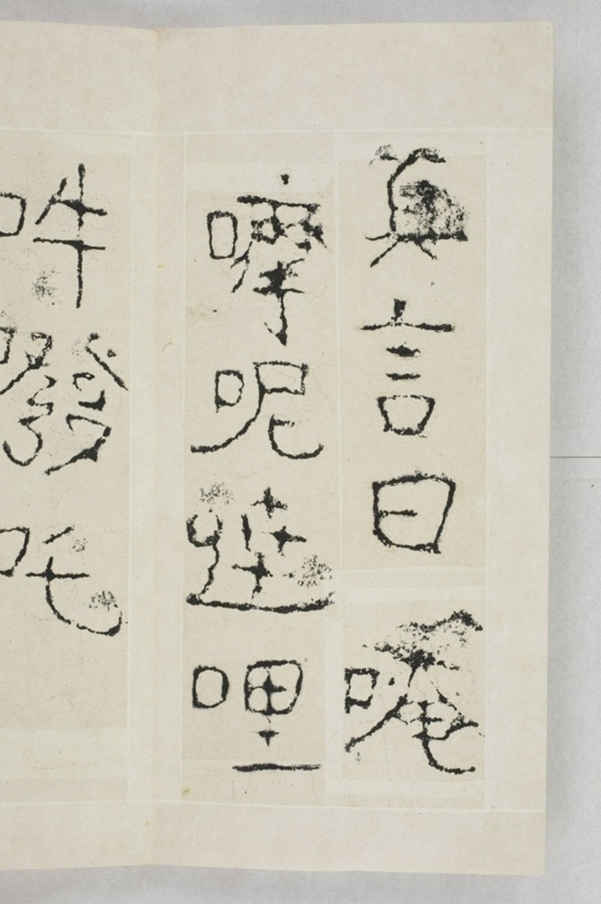 真言曰唵
嚤呢達哩
吽㗶吒